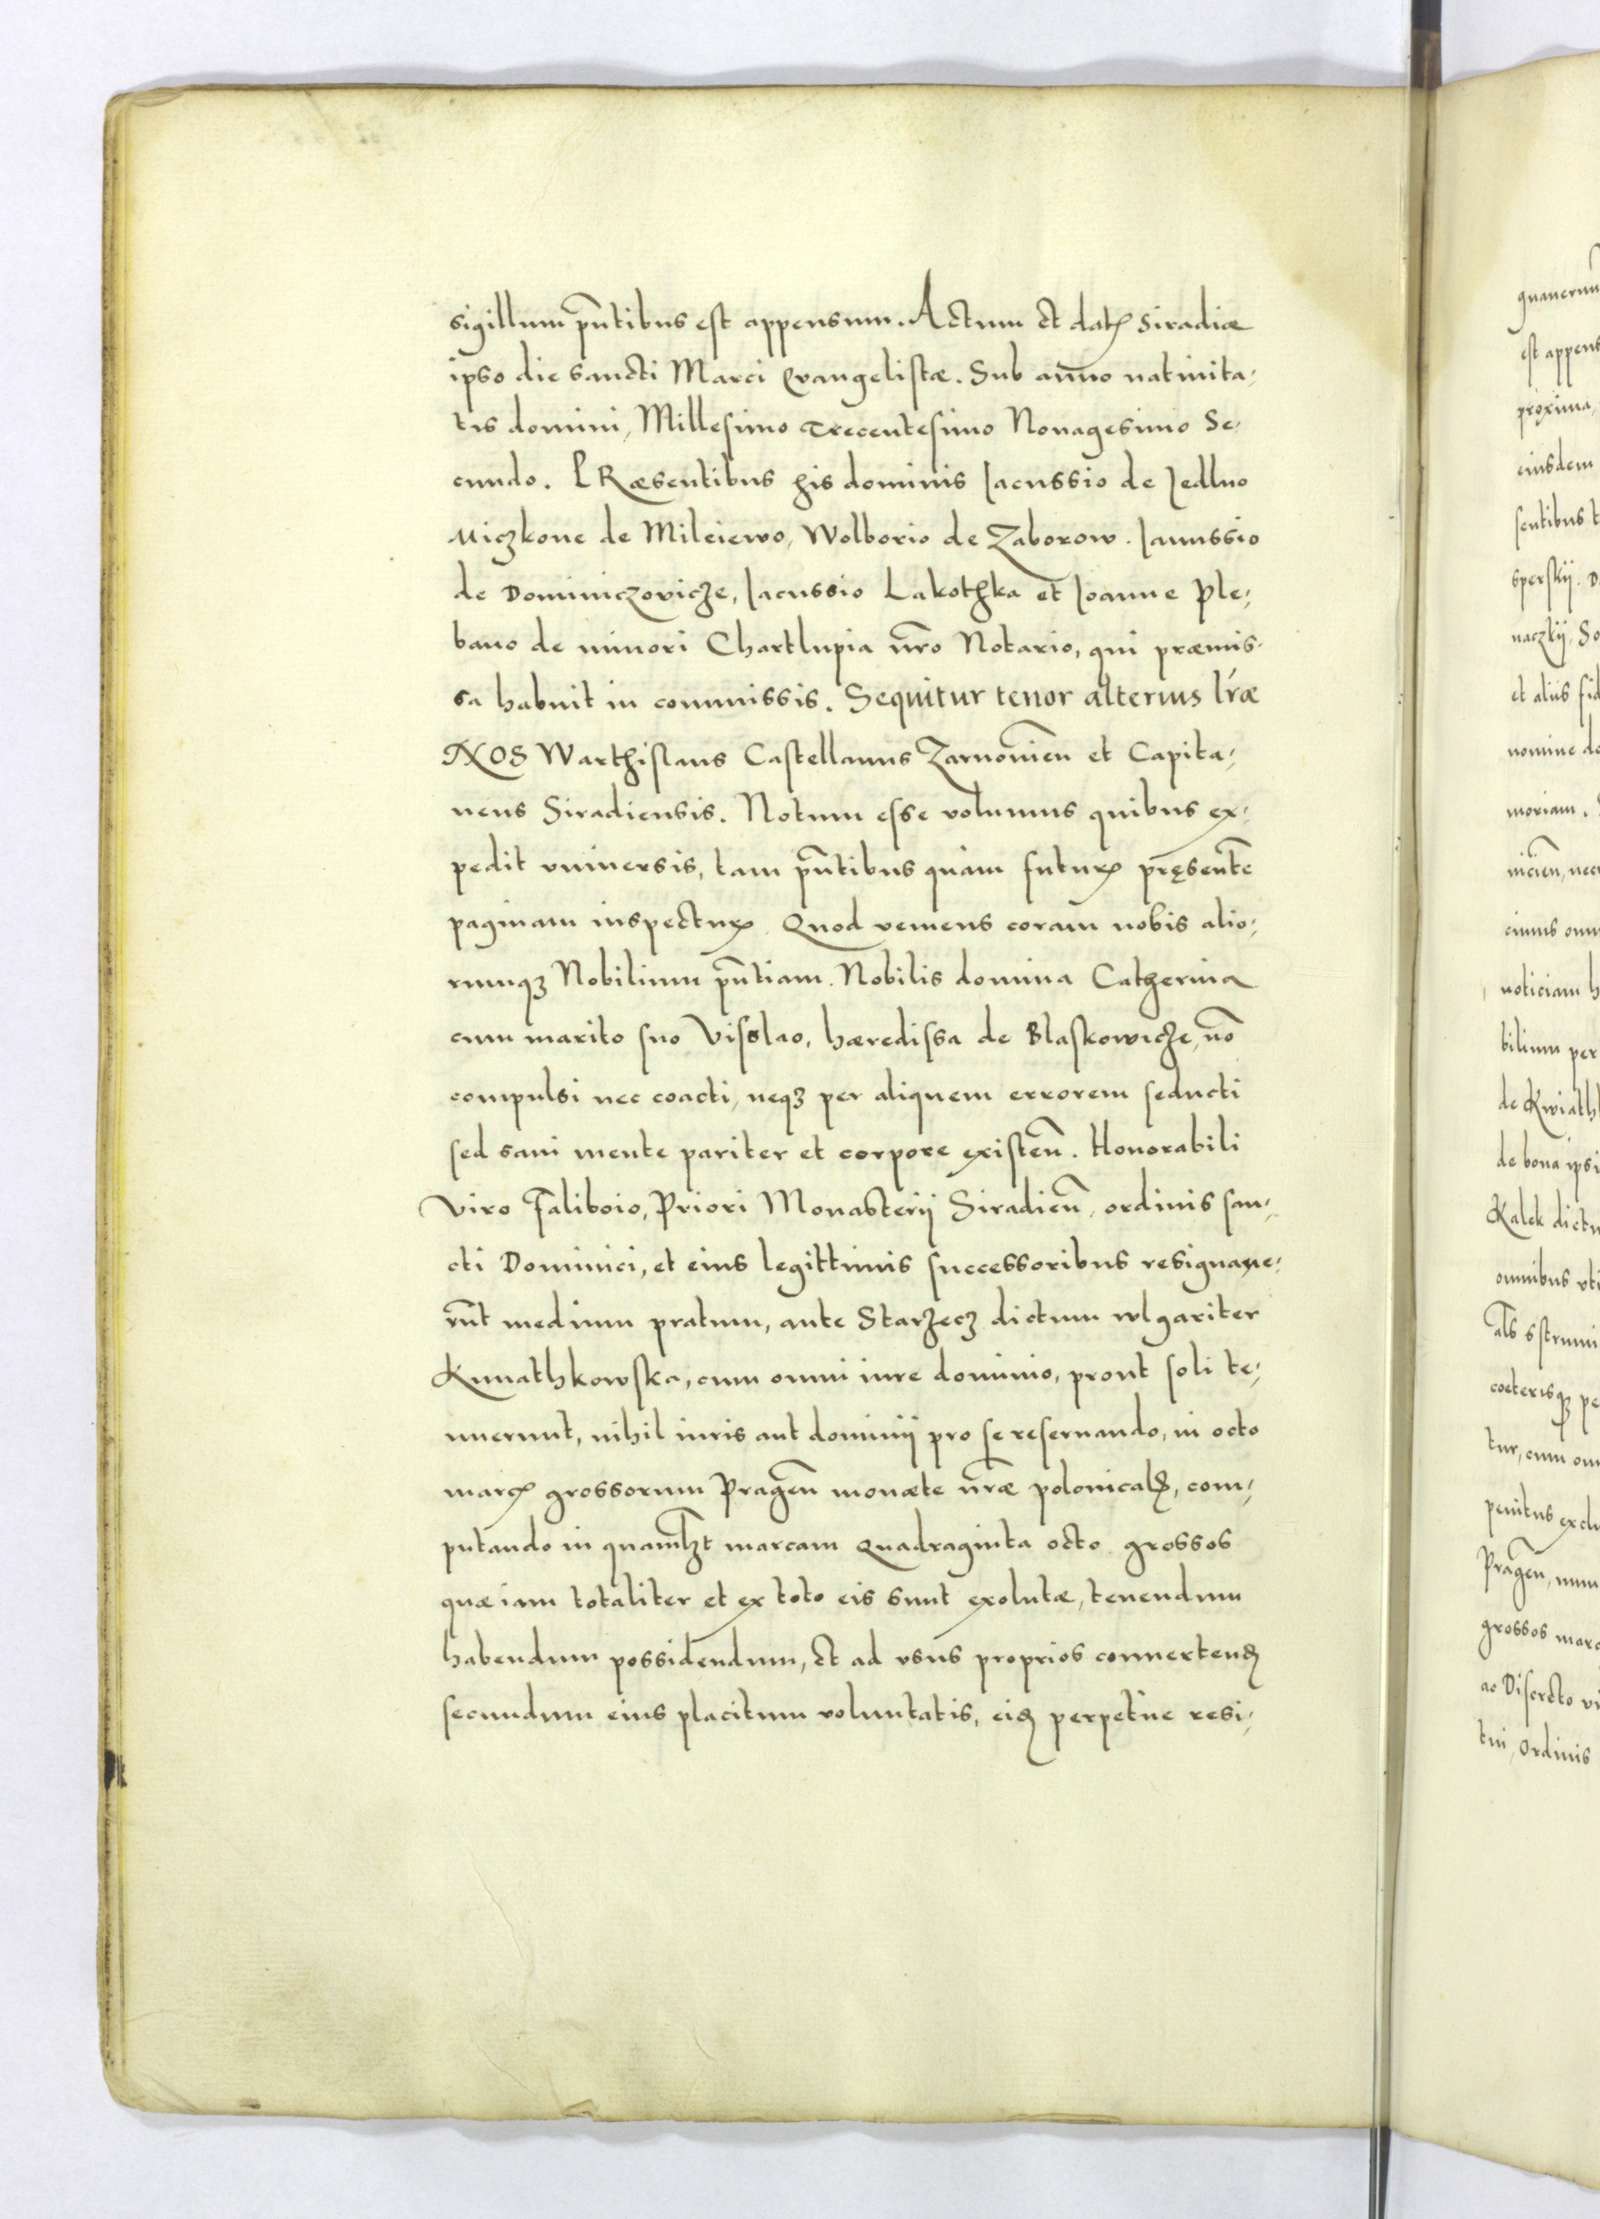 sigillum pñtibus est appensum. Actum et datꝭ Siradiæ
ipso die sancti Marci Evangelistæ. Sub anno nativita-
tis domini, Millesimo Trecentesimo Nonagesimo Se-
cundo. PRæsentibus his dominis Iacussio de Iedlno
Miczkone de Mileiewo, Wolborio de Zaborow. Ianussio
de Dominiczovicze, Iacussio Lakothka et Ioanne Ple-
bano de minori Chartlupia nr̃o Notario, qui præmis-
sa habuit in commissis. Sequitur tenor alterius lr̃æ
NOS Warthislaus Castellanus Zarnovieñ et Capita-
neus Siradiensis. Notum esse volumus quibus ex-
pedit vniversis, tam pñtibus quàm futurꝭ pręsentẽ
paginam inspecturꝭ Quod veniens coram nobis alio-
rumqꝫ Nobilium pñtiam. Nobilis domina Catherina
cum marito suo Visslao, hæredissa de Blaskowicze, nõ
compulsi nec coacti, neqꝫ per aliquem errorem seducti
sed sani mente pariter et corpore existeñ. Honorabili
viro Faliboio, Priori Monasterii Siradieñ, ordinis san-
cti Dominici, et eius legittimis successoribus resignave-
rũt medium pratum, ante Starzecz dictum wlgariter
Knnathkowska, cum omni iure dominio, prout soli te-
nuerunt, nihil iuris aut dominii pro se reservando, in octo
marcꝭ grossorum Prageñ monæte nr̃æ polonicalꝭ, com-
putando in quamlꝫt marcam Quadraginta octo grossos
quæ iam totaliter et ex toto eis sunt exolutæ, tenendum
habendum possidendum, et ad vsus proprios convertendꝭ
secundum eius placitum voluntatis, eisdꝭ perpetùe resi-

est appens
proxima,
eiusdem
et aliis fid
nomine do
moriam.
noticiam h
bilium per
de bona ipsi
Kalek dictu
omnibus vti
penitus exclu
Prageñ, num
grossos marc
ac Discreto vi
tui, Ordinis